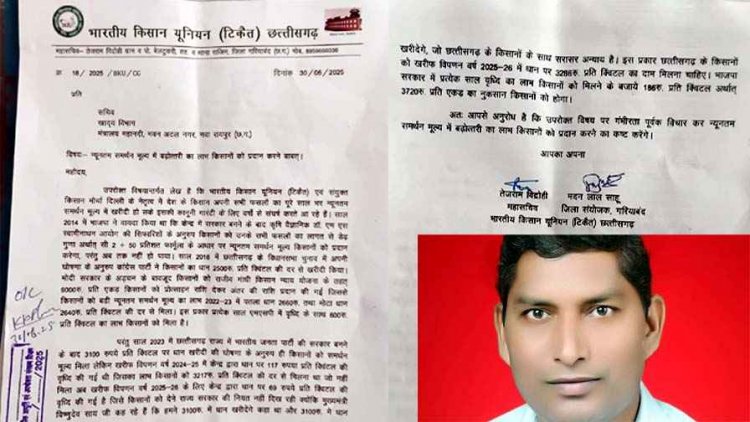 भारतीय किसान यूनियन (टिकैत) छत्तीसगढ़
महासचिव- तेजराम विद्रोही ग्राम व पो. बेलटुकरी, तह. व थाना राजिम, जिला गरियाबंद (छ.ग.)
क्र. 18 / 2025 / BKU / CG दिनांक 30/06/2025
प्रति
सचिव
खाद्य विभाग
मंत्रालय महानदी, भवन अटल नगर, नवा रायपुर (छ.ग.)
विषय:- न्यूनतम समर्थन मूल्य में बढ़ोत्तरी का लाभ किसानों को प्रदान करने बाबत्।
महोदय,
उपरोक्त विषयान्तर्गत लेख है कि भारतीय किसान यूनियन (टिकैत) एवं संयुक्त
किसान मोर्चा दिल्ली के नेतृत्व ने देश के किसान अपनी सभी फसलों का पूरे साल भर न्यूनतम
समर्थन मूल्य में खरीदी हो सके इसकी कानूनी गारंटी के लिए वर्षों से संघर्ष करते आ रहे हैं। साल
2014 में भाजपा ने वायदा किया था कि केन्द्र में सरकार बनने के बाद कृषि वैज्ञानिक डॉ. एम एस
स्वामीनाथन आयोग की सिफारिशों के अनुरूप किसानों को उनके सभी फसलों का लागत से डेढ़
गुणा अर्थात् सी 2 + 50 प्रतिशत फार्मूले के आधार पर न्यूनतम समर्थन मूल्य किसानों को प्रदान
करेगा, परंतु अब तक नहीं हो पाया। साल 2018 में छत्तीसगढ़ के विधानसभा चुनाव में अपनी
घोषणा के अनुरूप कांग्रेस पार्टी ने किसानों का धान 2500रु. प्रति क्विंटल की दर से खरीदी किया।
मोदी सरकार के अड़चन के बावजूद किसानों को राजीव गांधी किसान न्याय योजना के तहत
9000रु. प्रति एकड़ किसानों को प्रोत्साहन राशि देकर अंतर की राशि प्रदान की गई जिससे
किसानों को बढ़ी न्यूनतम समर्थन मूल्य का लाभ 2022-23 में पतला धान 2660रु. तथा मोटा धान
2640रु. प्रति क्विंटल की दर से मिला। इस प्रकार प्रत्येक साल एमएसपी में वृद्धि के साथ 600रु.
प्रति क्विंटल का लाभ किसानों को मिला है।
परंतु साल 2023 में छत्तीसगढ़ राज्य में भारतीय जनता पार्टी की सरकार बनने
के बाद 3100 रुपये प्रति क्विंटल पर धान खरीदी की घोषणा के अनुरूप ही किसानों को समर्थन
मूल्य मिला लेकिन खरीफ विपणन वर्ष 2024-25 में केन्द्र द्वारा धान पर 117 रुपया प्रति क्विंटल की
वृद्धि की गई थी जिसका लाभ किसानों को 3217रु. प्रति क्विंटल की दर से मिलना था जो नहीं
मिला अब खरीफ विपणन वर्ष 2025-26 के लिए केन्द्र द्वारा धान पर 69 रुपये प्रति क्विंटल की
वृद्धि की गई है जिसे किसानों को देने राज्य सरकार की नियत नहीं दिख रही क्योंकि मुख्यमंत्री
विष्णुदेव साय जी कह रहे हैं कि हमने 3100रु. में धान खरीदेंगे कहा था और 3100रु. में धान
खरीदेंगे, जो छत्तीसगढ़ के किसानों के साथ सरासर अन्याय है। इस प्रकार छत्तीसगढ़ के किसानों
को खरीफ विपणन वर्ष 2025-26 में धान पर 3286रु. प्रति क्विंटल का दाम मिलना चाहिए। भाजपा
सरकार में प्रत्येक साल वृद्धि का लाभ किसानों को मिलने के बजाये 186रु. प्रति क्विंटल अर्थात्
3720रु. प्रति एकड़ का नुकसान किसानों को होगा।
अतः आपसे अनुरोध है कि उपरोक्त विषय पर गंभीरता पूर्वक विचार कर न्यूनतम
समर्थन मूल्य में बढ़ोत्तरी का लाभ किसानों को प्रदान करने का कष्ट करेंगे।
आपका अपना
तेजराम विद्रोही मदन लाल साहू
महासचिव जिला संयोजक, गरियाबंद
भारतीय किसान यूनियन (टिकैत) छत्तीसगढ़
O/C
/2025